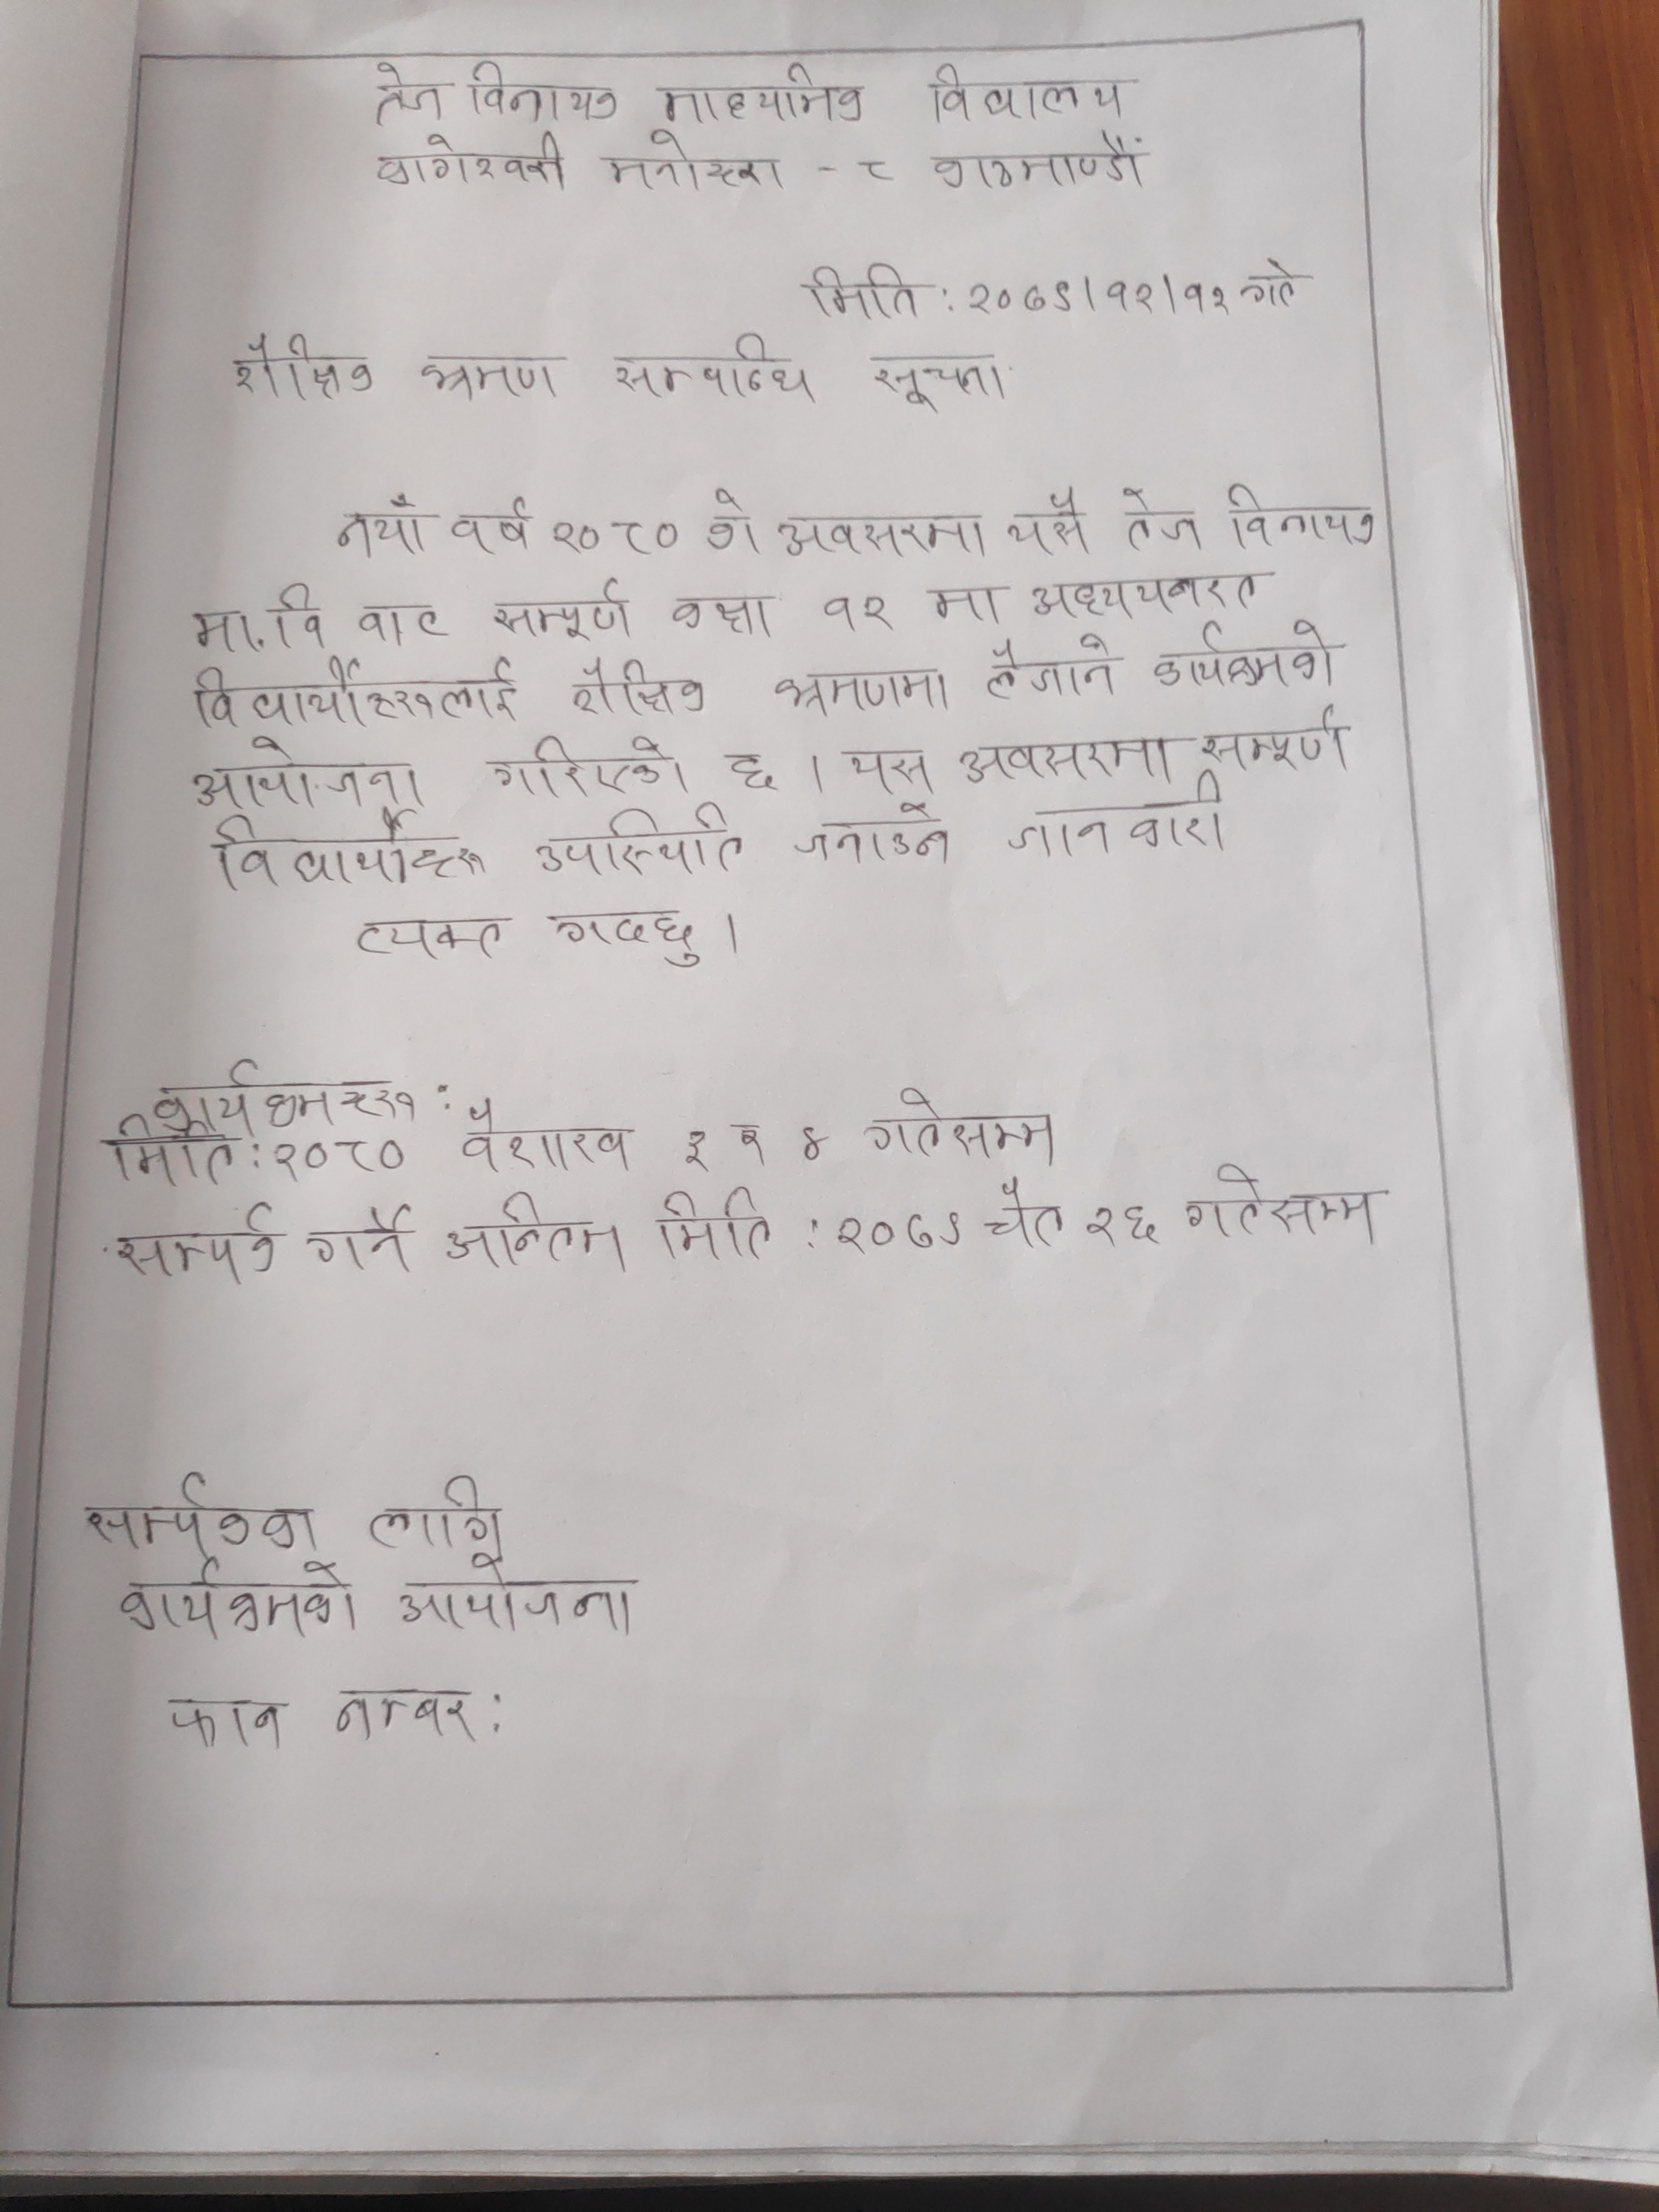 तेज विनायक माध्यमिक विद्यालय
कागेश्वरी मनोहरा - ८ काठमाण्डौं
मिति : २०७९।१२।१२ गते
शैक्षिक भ्रमण सम्बन्धि सूचना
नयाँ वर्ष २०८० को अवसरमा यसै तेज विनायक
मा.वि बाट सम्पूर्ण कक्षा १२ मा अध्ययनरत
विद्यार्थीहरूलाई शैक्षिक भ्रमणमा लैजाने कार्यक्रमको
आयोजना गरिएको छ । यस अवसरमा सम्पूर्ण
विद्यार्थीहरू उपस्थिति जनाउने जानकारी
व्यक्त गदछु ।
कार्यक्रमहरू :
मिति : २०८० वैशाख ३ र ४ गतेसम्म
सम्पर्क गर्ने अन्तिम मिति : २०७९ चैत २६ गतेसम्म
सर्म्पकका लागि
कार्यक्रमको आयोजना
फोन नम्बर :